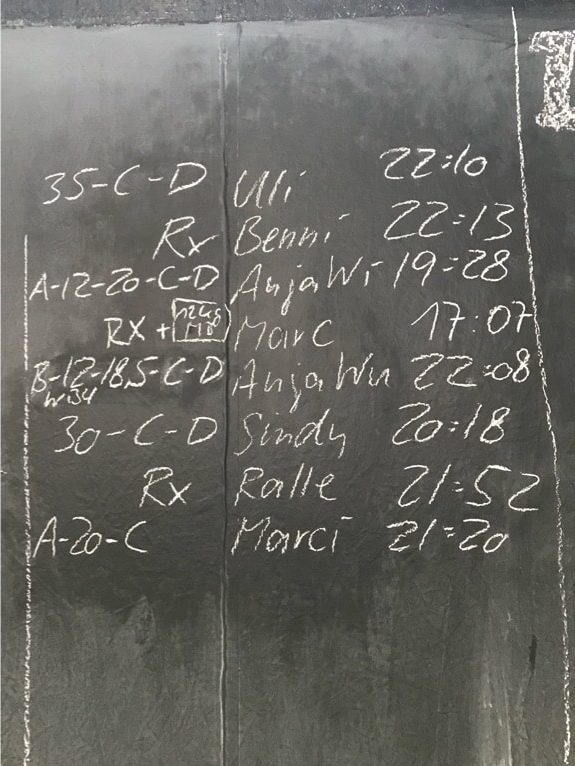 35-C-D Uli 22:10
Rx Benni 22:13
A-12-20-C-D AnjaWi 19:28
RX + Marc 17:07
B-12-18,5-C-D AnjaWu 22:08
30-C-D Sindy 20:18
Rx Ralle 21:52
A-20-C Marci 21:20